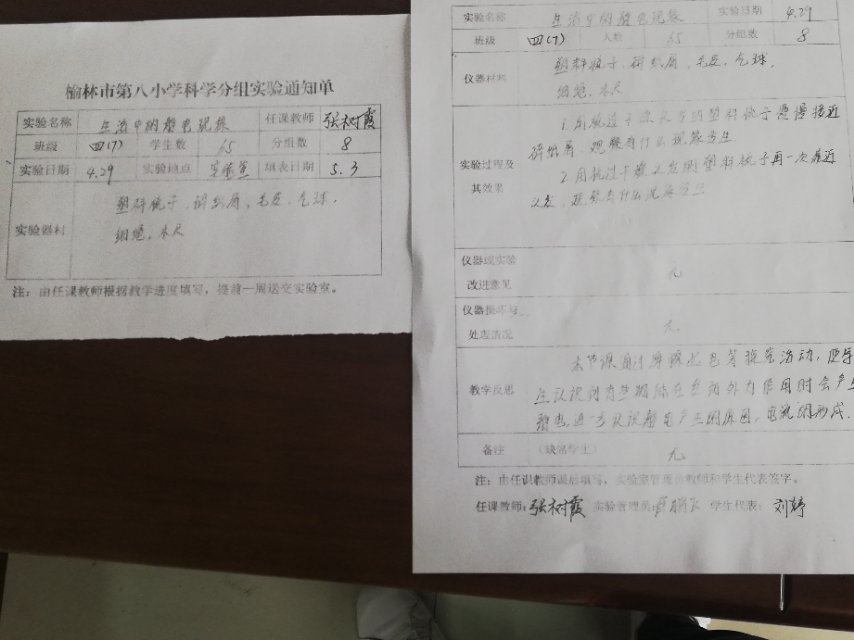 榆林市第八小学科学分组实验通知单
实验名称 生活中的静电现象 任课教师 张树霞
班级 四(7) 学生数 65 分组数 8
实验日期 4.29 实验地点 实验室 填表日期 5.3
实验器材 塑料梳子、碎纸屑、毛皮、气球、
细绳、木尺
注：由任课教师根据教学进度填写，提前一周送交实验室。
实验名称 生活中的静电现象 实验日期 4.29
班级 四(7) 人数 65 分组数 8
仪器材料 塑料梳子、碎纸屑、毛皮、气球、
细绳、木尺
实验过程及
其效果
1.用梳过干燥头发的塑料梳子慢慢接近
碎纸屑，观察有什么现象发生
2.用梳过干燥头发的塑料梳子再一次靠近
头发，观察有什么现象发生
仪器或实验
改进意见 无
仪器损坏与
处理情况 无
教学反思 本节课通过摩擦起电等探究活动，
认识到有些物体在受到外力作用时会产
静电，进一步认识静电产生的原因，电流的形成.
备注 (缺席学生) 无
注：由任课教师课后填写，实验室管理员教师和学生代表签字。
任课教师：张树霞 实验管理员： 学生代表：刘婷